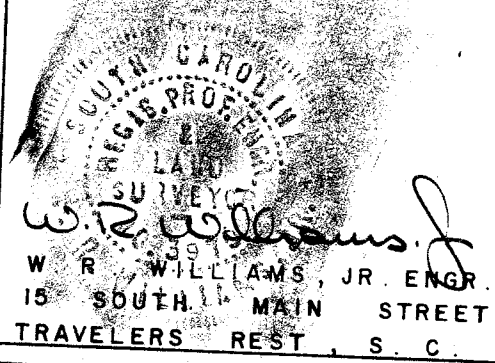 SOUTH CAROLINA
REGIS. PROF. ENGR.
&
LAND
SURVEYOR
W. R. Williams. Jr
W R WILLIAMS, JR. ENGR.
15 SOUTH MAIN STREET
TRAVELERS REST, S. C.